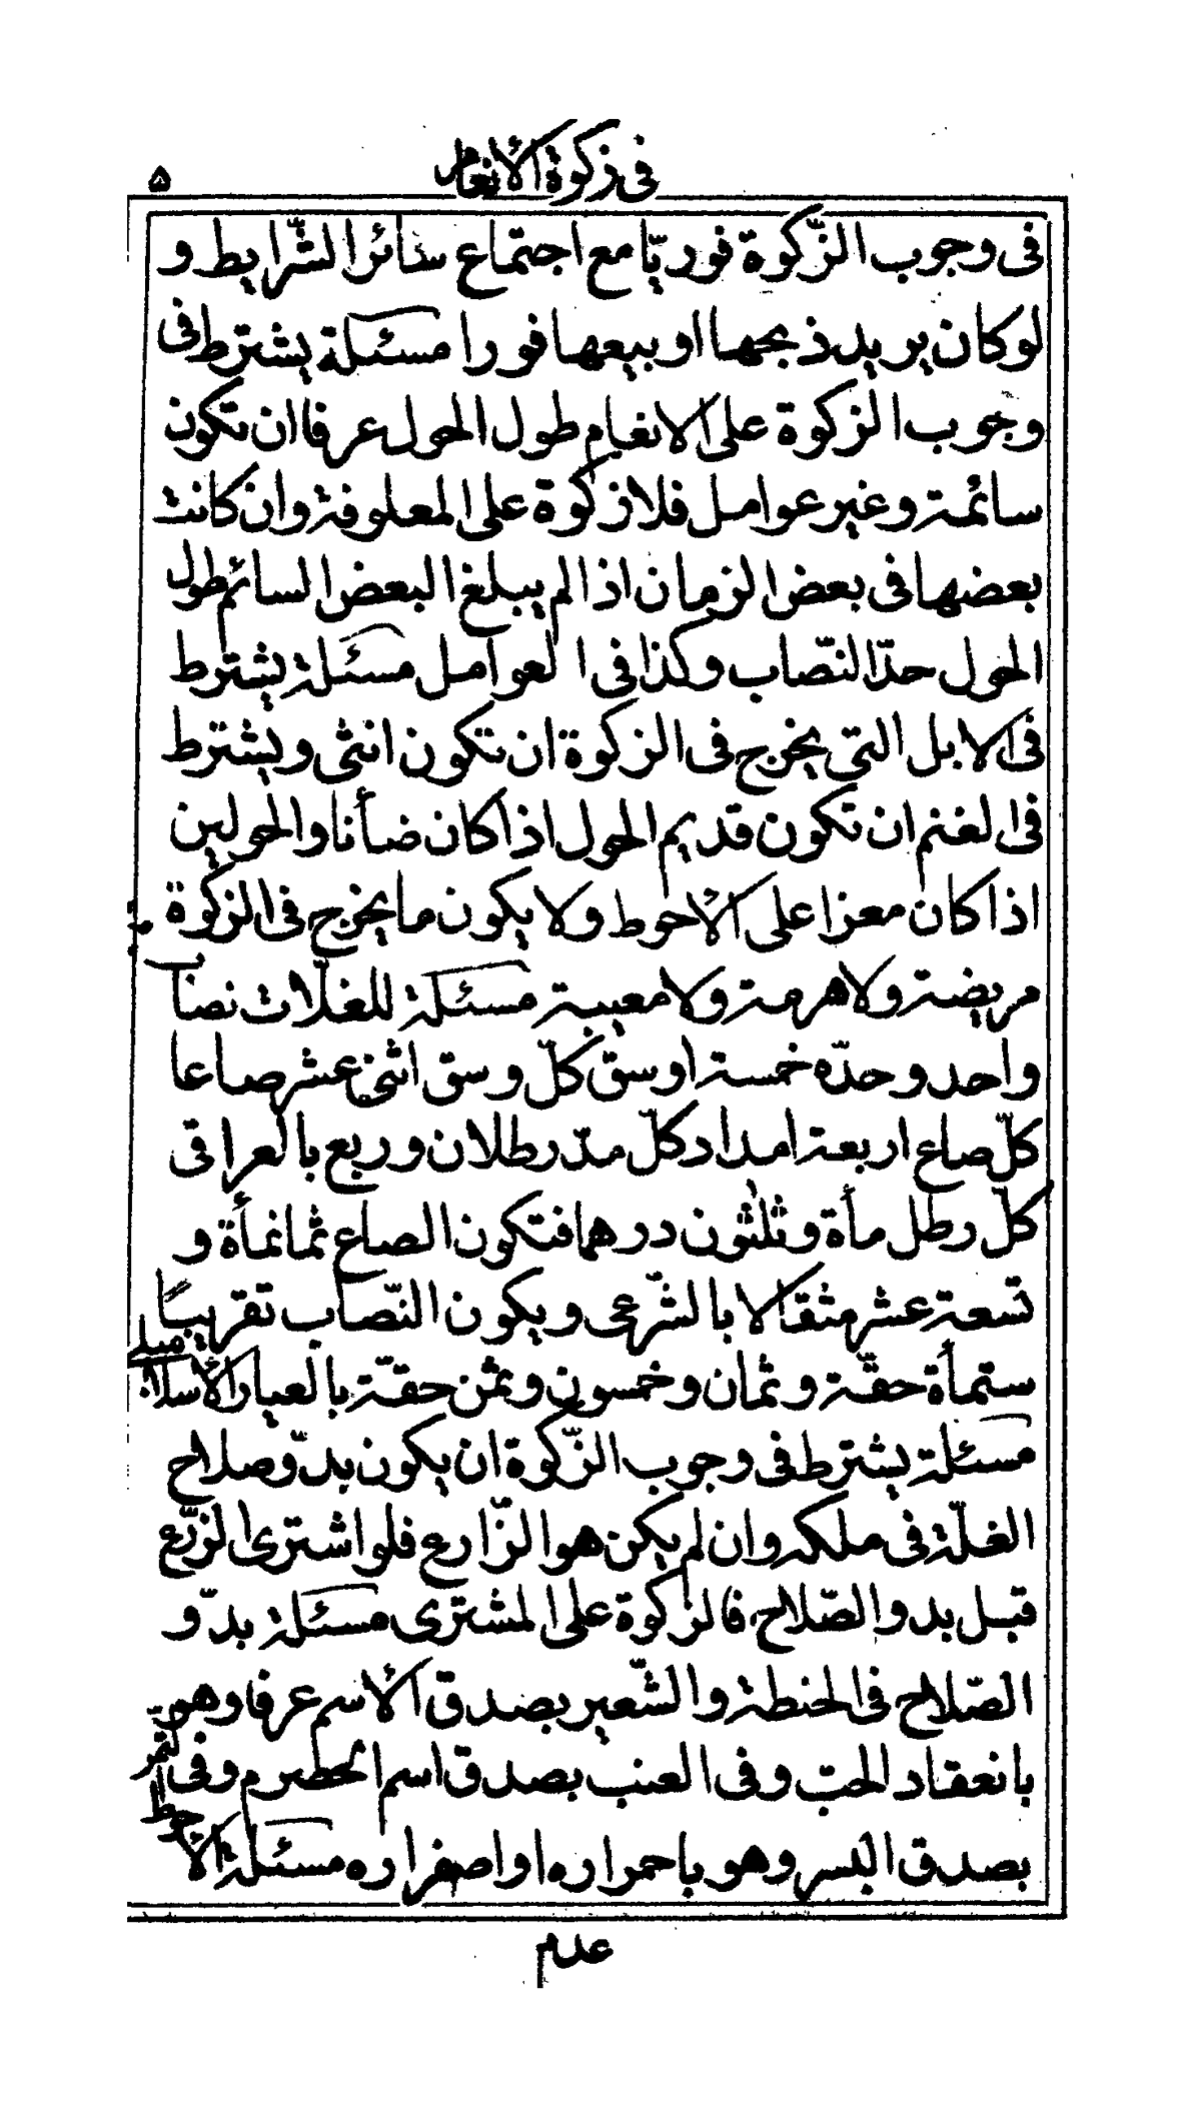 فی زکوة الأنعام
۵
فی وجوب الزّکوة فوریّا مع اجتماع سائر الشّرایط و
لو کان یرید ذبحها او بیعها فورا مسئلة یشترط فی
وجوب الزکوة علی الانعام طول الحول عرفا ان تکون
سائمة و غیر عوامل فلا زکوة علی المعلوفة و ان کانت
بعضها فی بعض الزمان اذا لم یبلغ البعض السائم طول
الحول حدّ النّصاب و کذا فی العوامل مسئلة یشترط
فی الابل التی یخرج فی الزکوة ان تکون انثی و یشترط
فی الغنم ان تکون قدیم الحول اذا کان ضأنا و الحولین
اذا کان معزا علی الأحوط و لا یکون ما یخرج فی الزکوة
مریضة و لا هرمة و لا معیبة مسئلة للغلّات نصاب
واحد و حدّه خمسة اوسق کلّ وسق اثنی عشر صاعا
کلّ صاع اربعة امداد کلّ مدّ رطلان و ربع بالعراقی
کلّ رطل مأة و ثلثون درهما فتکون الصاع ثمانمأة و
تسعة عشر مثقالا بالشّرعی و یکون النّصاب تقریبًا
ستمأة حقّة و ثمان و خمسون و ثمن حقّة بالعیار الأسلامبلی
مسئلة یشترط فی وجوب الزّکوة ان یکون بدّو صلاح
الغلّة فی ملکه و ان لم یکن هو الزّارع فلو اشتری الزّرع
قبل بدو الصّلاح فالزکوة علی المشتری مسئلة بدّو
الصّلاح فی الحنطة و الشّعیر بصدق الأسم عرفا و هو
بانعقاد الحبّ و فی العنب بصدق اسم الحصرم و فی التمر
بصدق البسر و هو باحمراره او اصفراره مسئلة الأحوط
عدم